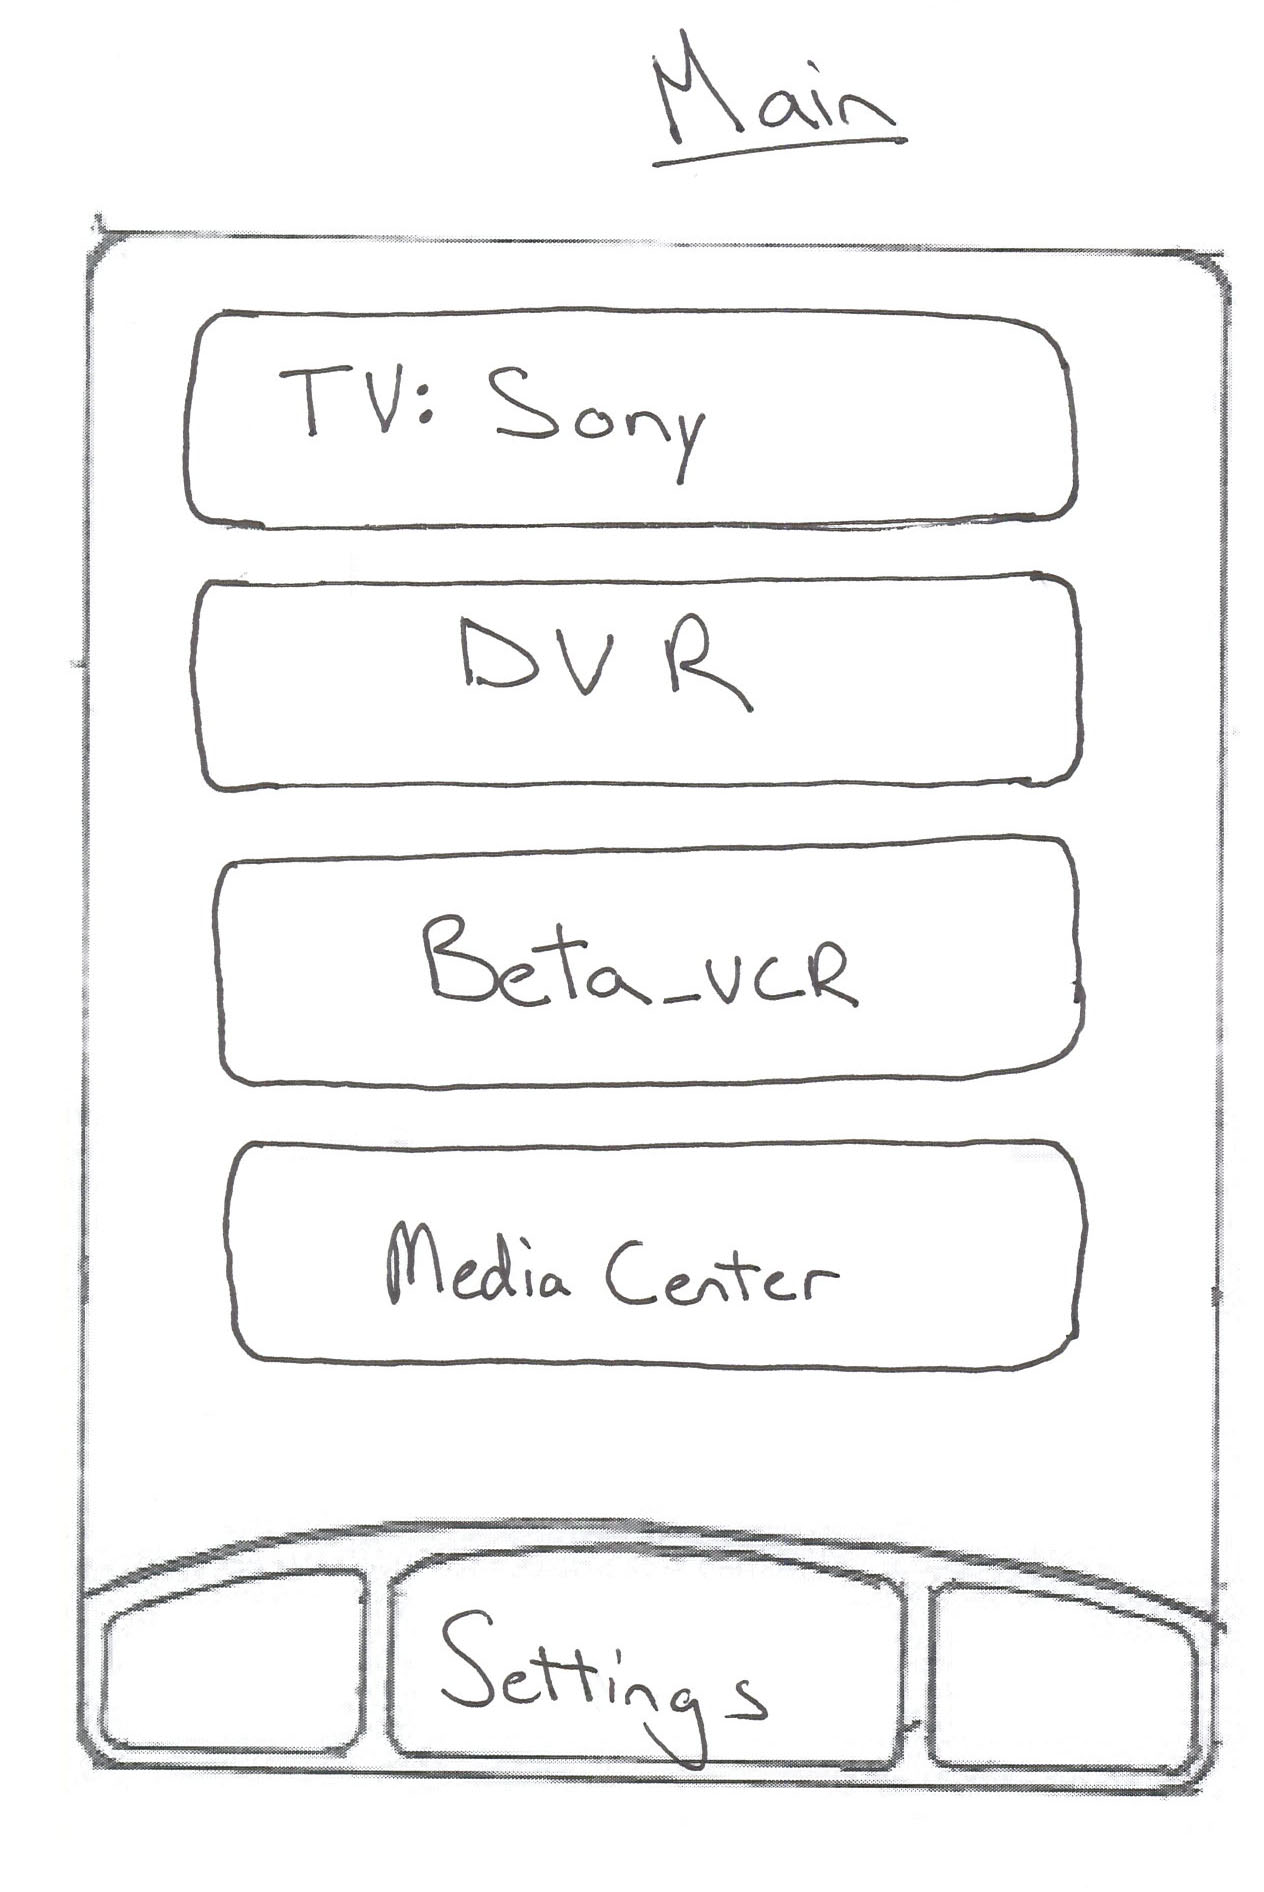 Main
TV: Sony
DVR
Beta_VCR
Media Center
Settings